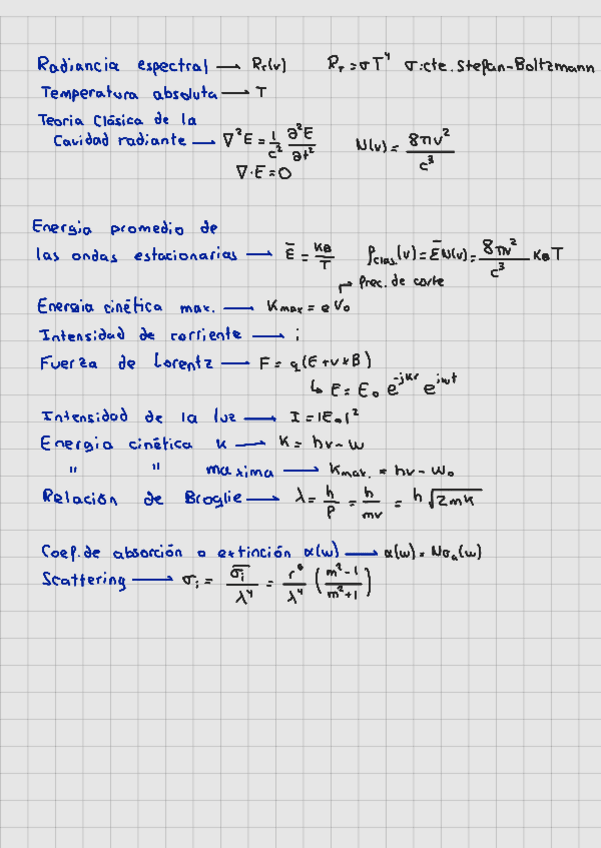 Radiancia espectral → R_T(ν) R_T = σT⁴ σ: cte. Stefan-Boltzmann
Temperatura absoluta → T
Teoria Clásica de la
Cavidad radiante → ∇²E = 1/c² ∂²E/∂t² N(ν) = 8πν²/c³
∇·E = 0
Energia promedio de
las ondas estacionarias → Ē = K_B/T ρ_clas.(ν) = Ē N(ν) = 8πν²/c³ K_B T
↱ frec. de corte
Energia cinética max. → K_max = eV₀
Intensidad de corriente → i
Fuerza de Lorentz → F = q(E+v×B)
↳ E = E₀ e^(-jkr) e^(jωt)
Intensidad de la luz → I = |E₀|²
Energia cinética K → K = hν - W
" " maxima → K_max. = hν - W₀
Relación de Broglie → λ = h/p = h/mv = h √2mK
Coef. de absorción o extinción α(ω) → α(ω) = Nσ_a(ω)
Scattering → σ_i = σ̄_i/λ⁴ = r⁶/λ⁴ (m²-1/m²+1)